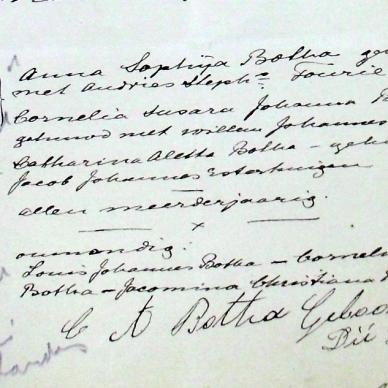 Anna Sophija Botha ge
met Andries Steph.s Fourie
Cornelia Susara Johanna
gehuwd met Willem Johannes
Catharina Aletta Botha – geh
Jacob Johannes Esterhuizen
allen meerderjaarig.
x
onmondig:
Louis Johannes Botha – Cornel
Botha – Jacomina Christiana
C A Botha Geboo